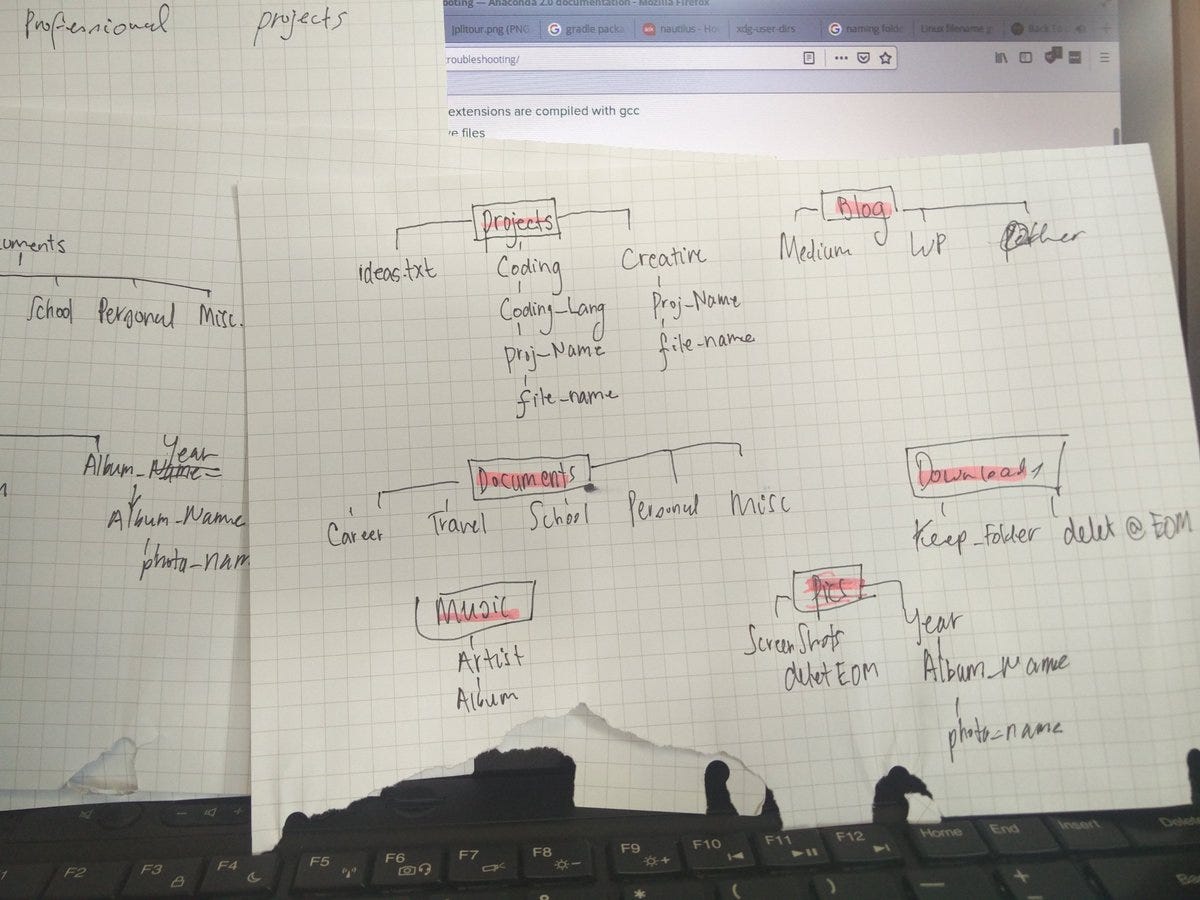 Professional projects
ooting — Anaconda 2.0 documentation - Mozilla Firefox
jplitour.png (PNG
gradle packa
nautilus - Ho
xdg-user-dirs
naming folde
Linux filename
roubleshooting/
extensions are compiled with gcc
ve files
uments
School Personal Misc.
Year
Album_Name
Album_Name
photo_nam
Projects
ideas.txt Coding Creative
Coding_Lang Proj_Name
Proj_Name file_name
file_name
Blog
Medium WP Other
Documents
Career Travel School Personal Misc
Downloads
Keep_folder delet @ EOM
Music
Artist
Album
Pics
ScreenShots Year
delet EOM Album_Name
photo_name
F2 F3 F4 F5 F6 F7 F8 F9 F10 F11 F12 Home End Insert Delete
* ( ) — +